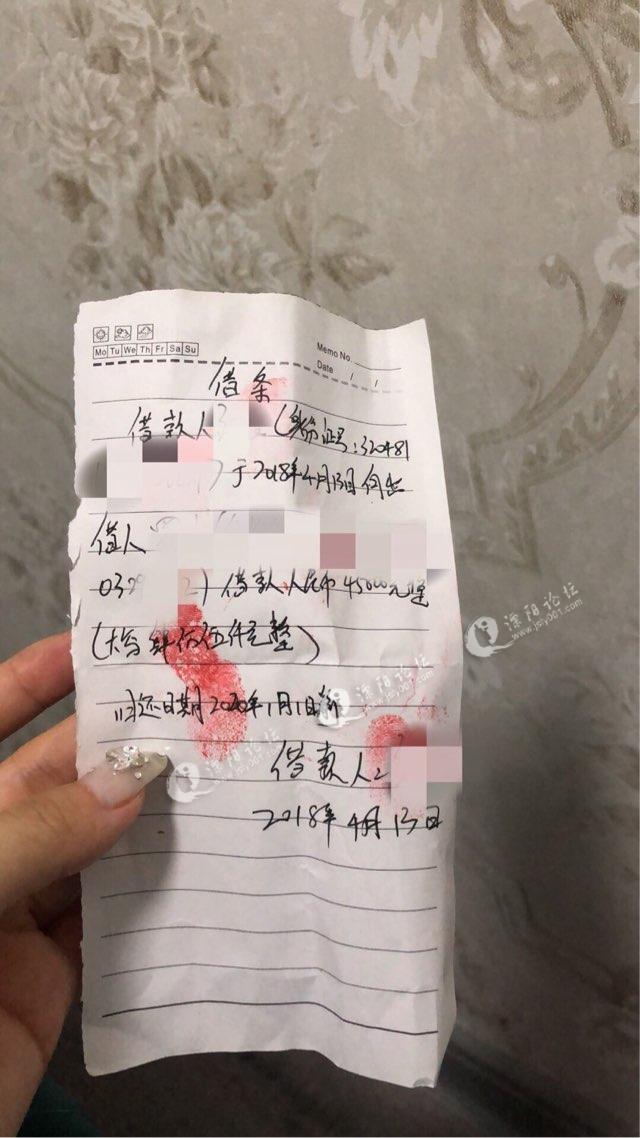 Memo No.
Mo Tu We Th Fr Sa Su
Date / /
借条
借款人 (身份证号:320481
) 于2018年4月13日向出
借人
03 2) 借款人民币45000元整
(大写肆万伍仟元整)
归还日期2020年1月1日前
借款人
2018年4月13日
溧阳论坛
www.jsly001.com
溧阳论坛
www.jsly001.com
溧阳论坛
www.jsly001.com